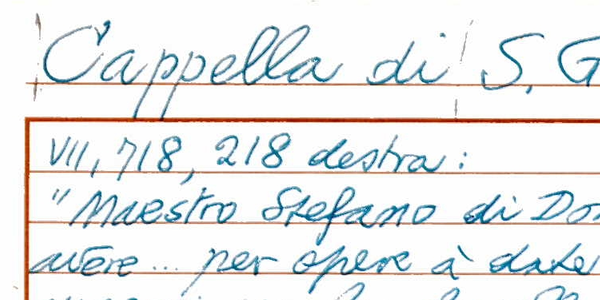 Cappella di S. G
VII, 718, 218 destra:
"Maestro Stefano di Do
avere... per opere à date